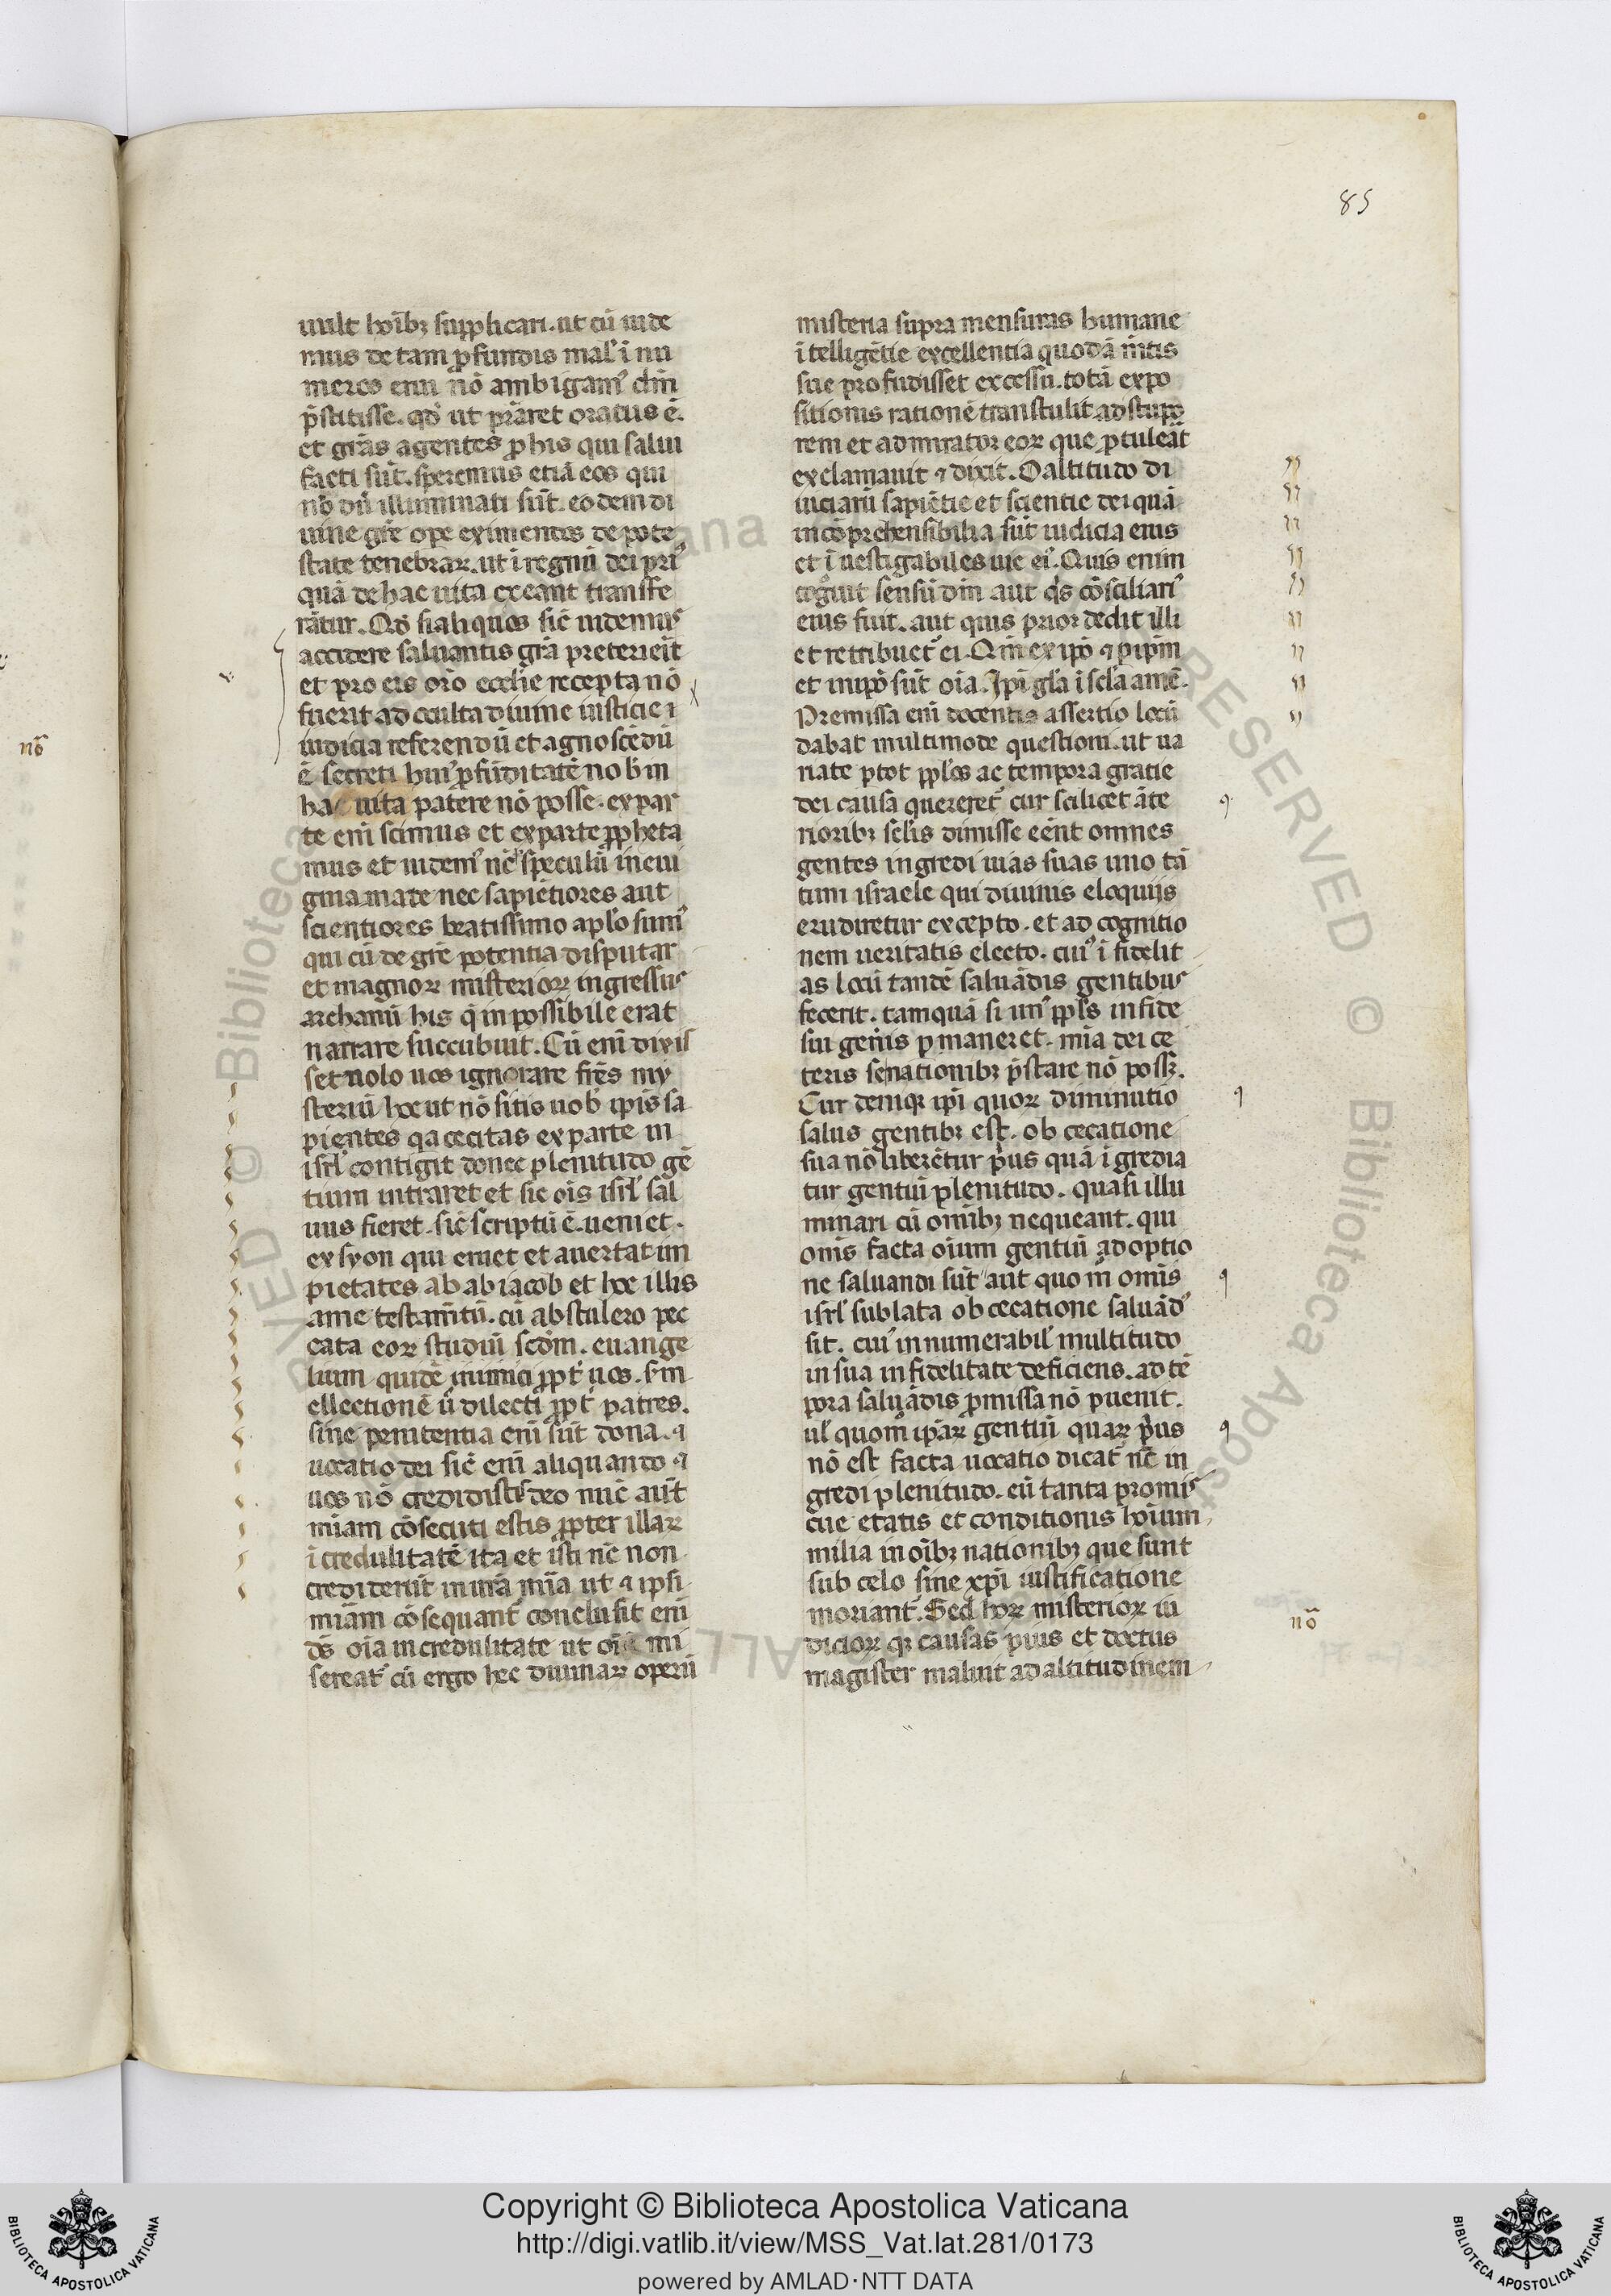 85
uult hoı̅bꝫ supplicari. ut cū uide
mus de tam ꝓfundis mal' ı̅ nu
meros erui nō ambigam' dn̄m
p̄stitisse. qd' ut p̄raret oratus ē.
et gr̄as agentes ꝓ his qui salui
facti sūt. speremus etiā eos qui
nō dū illuminati sūt. eodem di
uine gr̄e ope eximendos de pote
state tenebraꝝ. ut ı̅ regnū dei pri'
quā de hac uita exeant transfe
rātur. Qd' si aliquos sic̄ uidemus
accidere saluantis gr̄a preterieı̅t
et pro eis or̄o eccl'ie recepta nō
fuerit ad occulta diuine iusticie
iudicia referendū et agnoscēdū
ē secreti hui' ꝓfūditatē nob̄ in
hac uita patere nō posse. ex par
te eni̅ scimus et ex parte ꝓpheta
mus et uidem' nc̄ p speculū in eni
gmamate nec sapiētiores aut
scientiores beatissimo apl'o sum'
qui cū de gr̄e potentia disputar
et magnoꝝ misterioꝝ ingressus
archanū his q̄ inpossibile erat
narrare succubuit. Cū eni̅ dixis
set nolo uos ignorare fr̄es my
steriū hoc ut nō sitis uob̄ ip̄is sa
pientes qa cecitas ex parte in
isrl' contigit donec plenitudo gē
tium intraret et sic ois̄ isrl' sal
uus fieret. sic̄ scriptū ē. ueniet.
ex syon qui eruet et auertat im
pietates ab ab iacob et hoc illis
a me testam̄tū. cū abstulero pec
cata eoꝝ studiū scd̄m. euange
lium quidē inimici ꝓpt' uos. sm
ellectionē ū dilecti ꝓpt' patres.
sine penitentia eni̅ sūt dona. ⁊
uocatio dei sic̄ eni̅ aliquando ⁊
uos nō credidistis deo nūc aūt
mı̅am cōsecuti estis ꝓpter illaꝝ
ı̅credulitatē ita et isti nc̄ non
crediderūt in urā mı̅a ut ⁊ ipsi
mı̅am cōsequant' conclusit eni̅
ds̄ oı̅a in credulitate ut oı̅u mi
sereat' cū ergo hec diuinaꝝ operū
misteria supra mensuras humane
ı̅telligētie excellentia quodā m̄tis
sue profudisset excessu. totā expo
sitionis rationē transtulit ad stupo
rem et admirator eoꝝ que ꝓtuleāt
exclamauit ⁊ dixit. O altitudo di
uiciarū sapiētie et scientie dei quā
incōprehensibilia sūt iudicia eius
et ı̅uestigabiles uie ei'. Quis enim
cogūit sensū dn̄i aut q's cōsciliari'
eius fuit. aut quis prior dedit illi
et retribuet' ei. Qm̄ ex ipō ⁊ p ip̄m
et in ipō sūt oı̅a. Ip̄i gl'a ı̅ scl'a amē.
Premissa eni̅ docentis assertio locū
dabat multimode questioni. ut ua
riate ꝑ tot ppl'os ac tempora gratie
dei causa quereret' cur scilicet āte
rioribꝫ scl'is dimisse eēnt omnes
gentes ingredi uias suas uno tā
tum israele qui diuinis eloquijs
erudiretur excepto. et ad cognitio
nem ueritatis electo. cui' ı̅ fidelit
as locū tandē saluādis gentibus
fecerit. tamquā si un' ppl's in fide
sui gen̄is ꝑmaneret. mı̅a dei ce
teris senationibꝫ p̄stare nō possꝫ.
Cur deniqꝫ ip̄i quoꝝ diminutio
salus gentibꝫ est. obcecatione
sua nō liberētur prius quā ı̅gredia
tur gentiū plenitudo. quasi illu
minari cū omı̅bꝫ nequeant. qui
om̄s facta oı̅um gentiū adoptio
ne saluandi sūt aut quo m̄ om̄is
isrl' sublata obcecatione saluād'
sit. cui' innumerabil' multitudo
in sua infidelitate deficiens. ad tē
pora saluādis ꝓmissa nō puenit.
ul' quom̄ ip̄aꝝ gentiū quaꝝ prius
nō est facta uocatio dicat' nc̄ in
gredi plenitudo. cū tanta promis
cue etatis et conditionis hoı̅um
milia in oı̅bꝫ nationibꝫ que sunt
sub celo sine xp̄i iustificatione
moriant'. Sed hoꝝ misterioꝝ iu
dicioꝝ qꝫ causas pius et doctus
magister maluit ad altitudinem
nō
nō
Copyright © Biblioteca Apostolica Vaticana
http://digi.vatlib.it/view/MSS_Vat.lat.281/0173
powered by AMLAD·NTT DATA
BIBLIOTECA APOSTOLICA VATICANA
BIBLIOTECA APOSTOLICA VATICANA